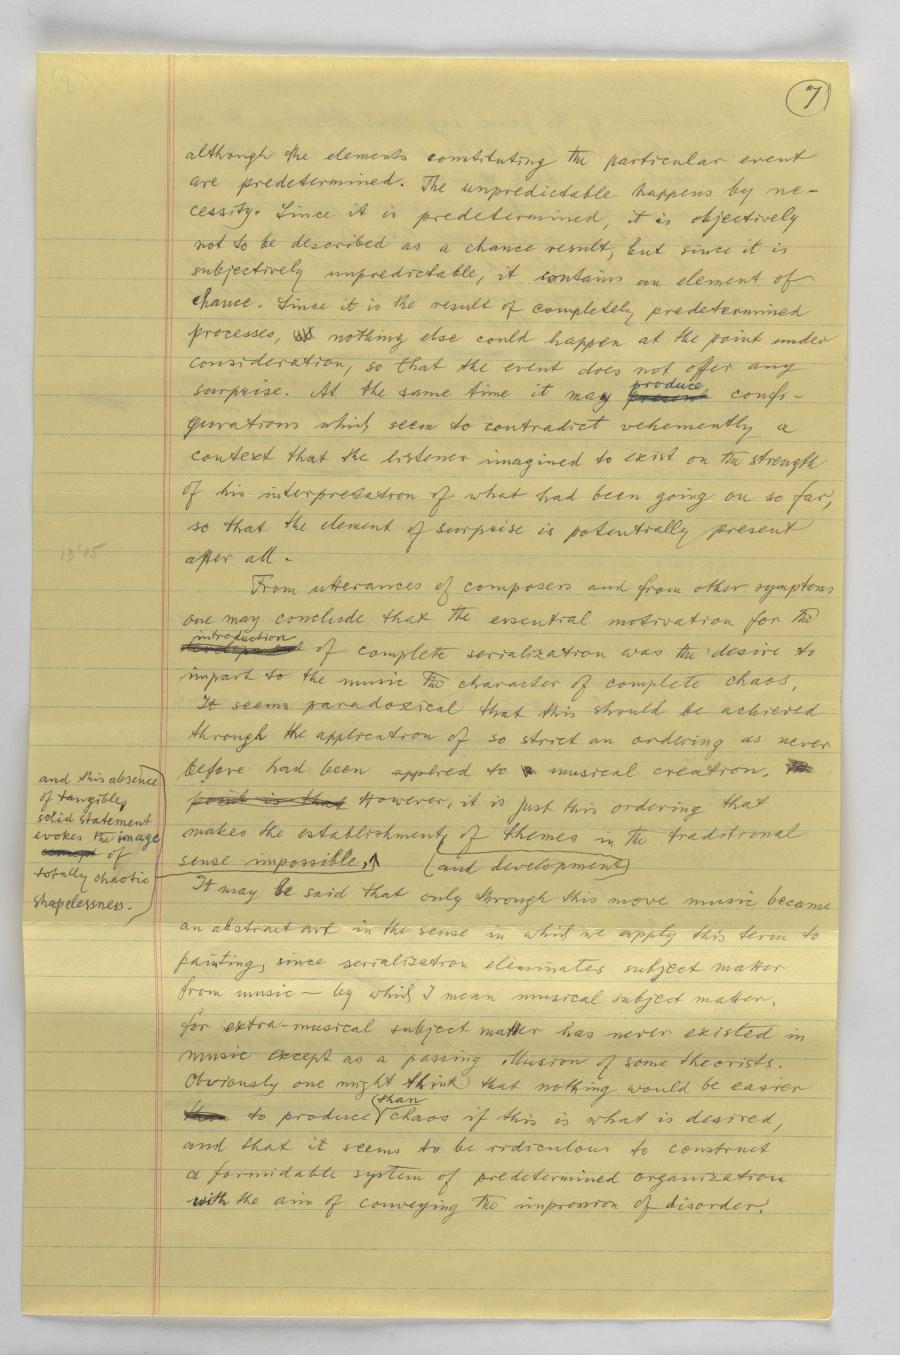 7
although the elements constituting the particular event
are predetermined. The unpredictable happens by ne-
cessity. Since it is predetermined, it is objectively
not to be described as a chance result, but since it is
subjectively unpredictable, it contains an element of
chance. Since it is the result of completely predetermined
processes, nothing else could happen at the point under
consideration, so that the event does not offer any
produce
surprise. At the same time it may present confi-
gurations which seem to contradict vehemently a
context that the listener imagined to exist on the strength
of his interpretation of what had been going on so far,
so that the element of surprise is potentially present
after all.
13'15
From utterances of composers and from other symptoms
one may conclude that the essential motivation for the
introduction
development of complete serialization was the desire to
impart to the music the character of complete chaos.
It seems paradoxical that this should be achieved
through the application of so strict an ordering as never
before had been applied to musical creation. The
point is that However, it is just this ordering that
makes the establishment of themes in the traditional
sense impossible, (and development)
and this absence
of tangible,
solid statement
evokes the image
concept of
totally chaotic
shapelessness.
It may be said that only through this move music became
an abstract art in the sense in which we apply this term to
painting, since serialization eliminates subject matter
from music — by which I mean musical subject matter,
for extra-musical subject matter has never existed in
music except as a passing illusion of some theorists.
Obviously one might think that nothing would be easier
than
than to produce chaos if this is what is desired,
and that it seems to be ridiculous to construct
a formidable system of predetermined organization
with the aim of conveying the impression of disorder.